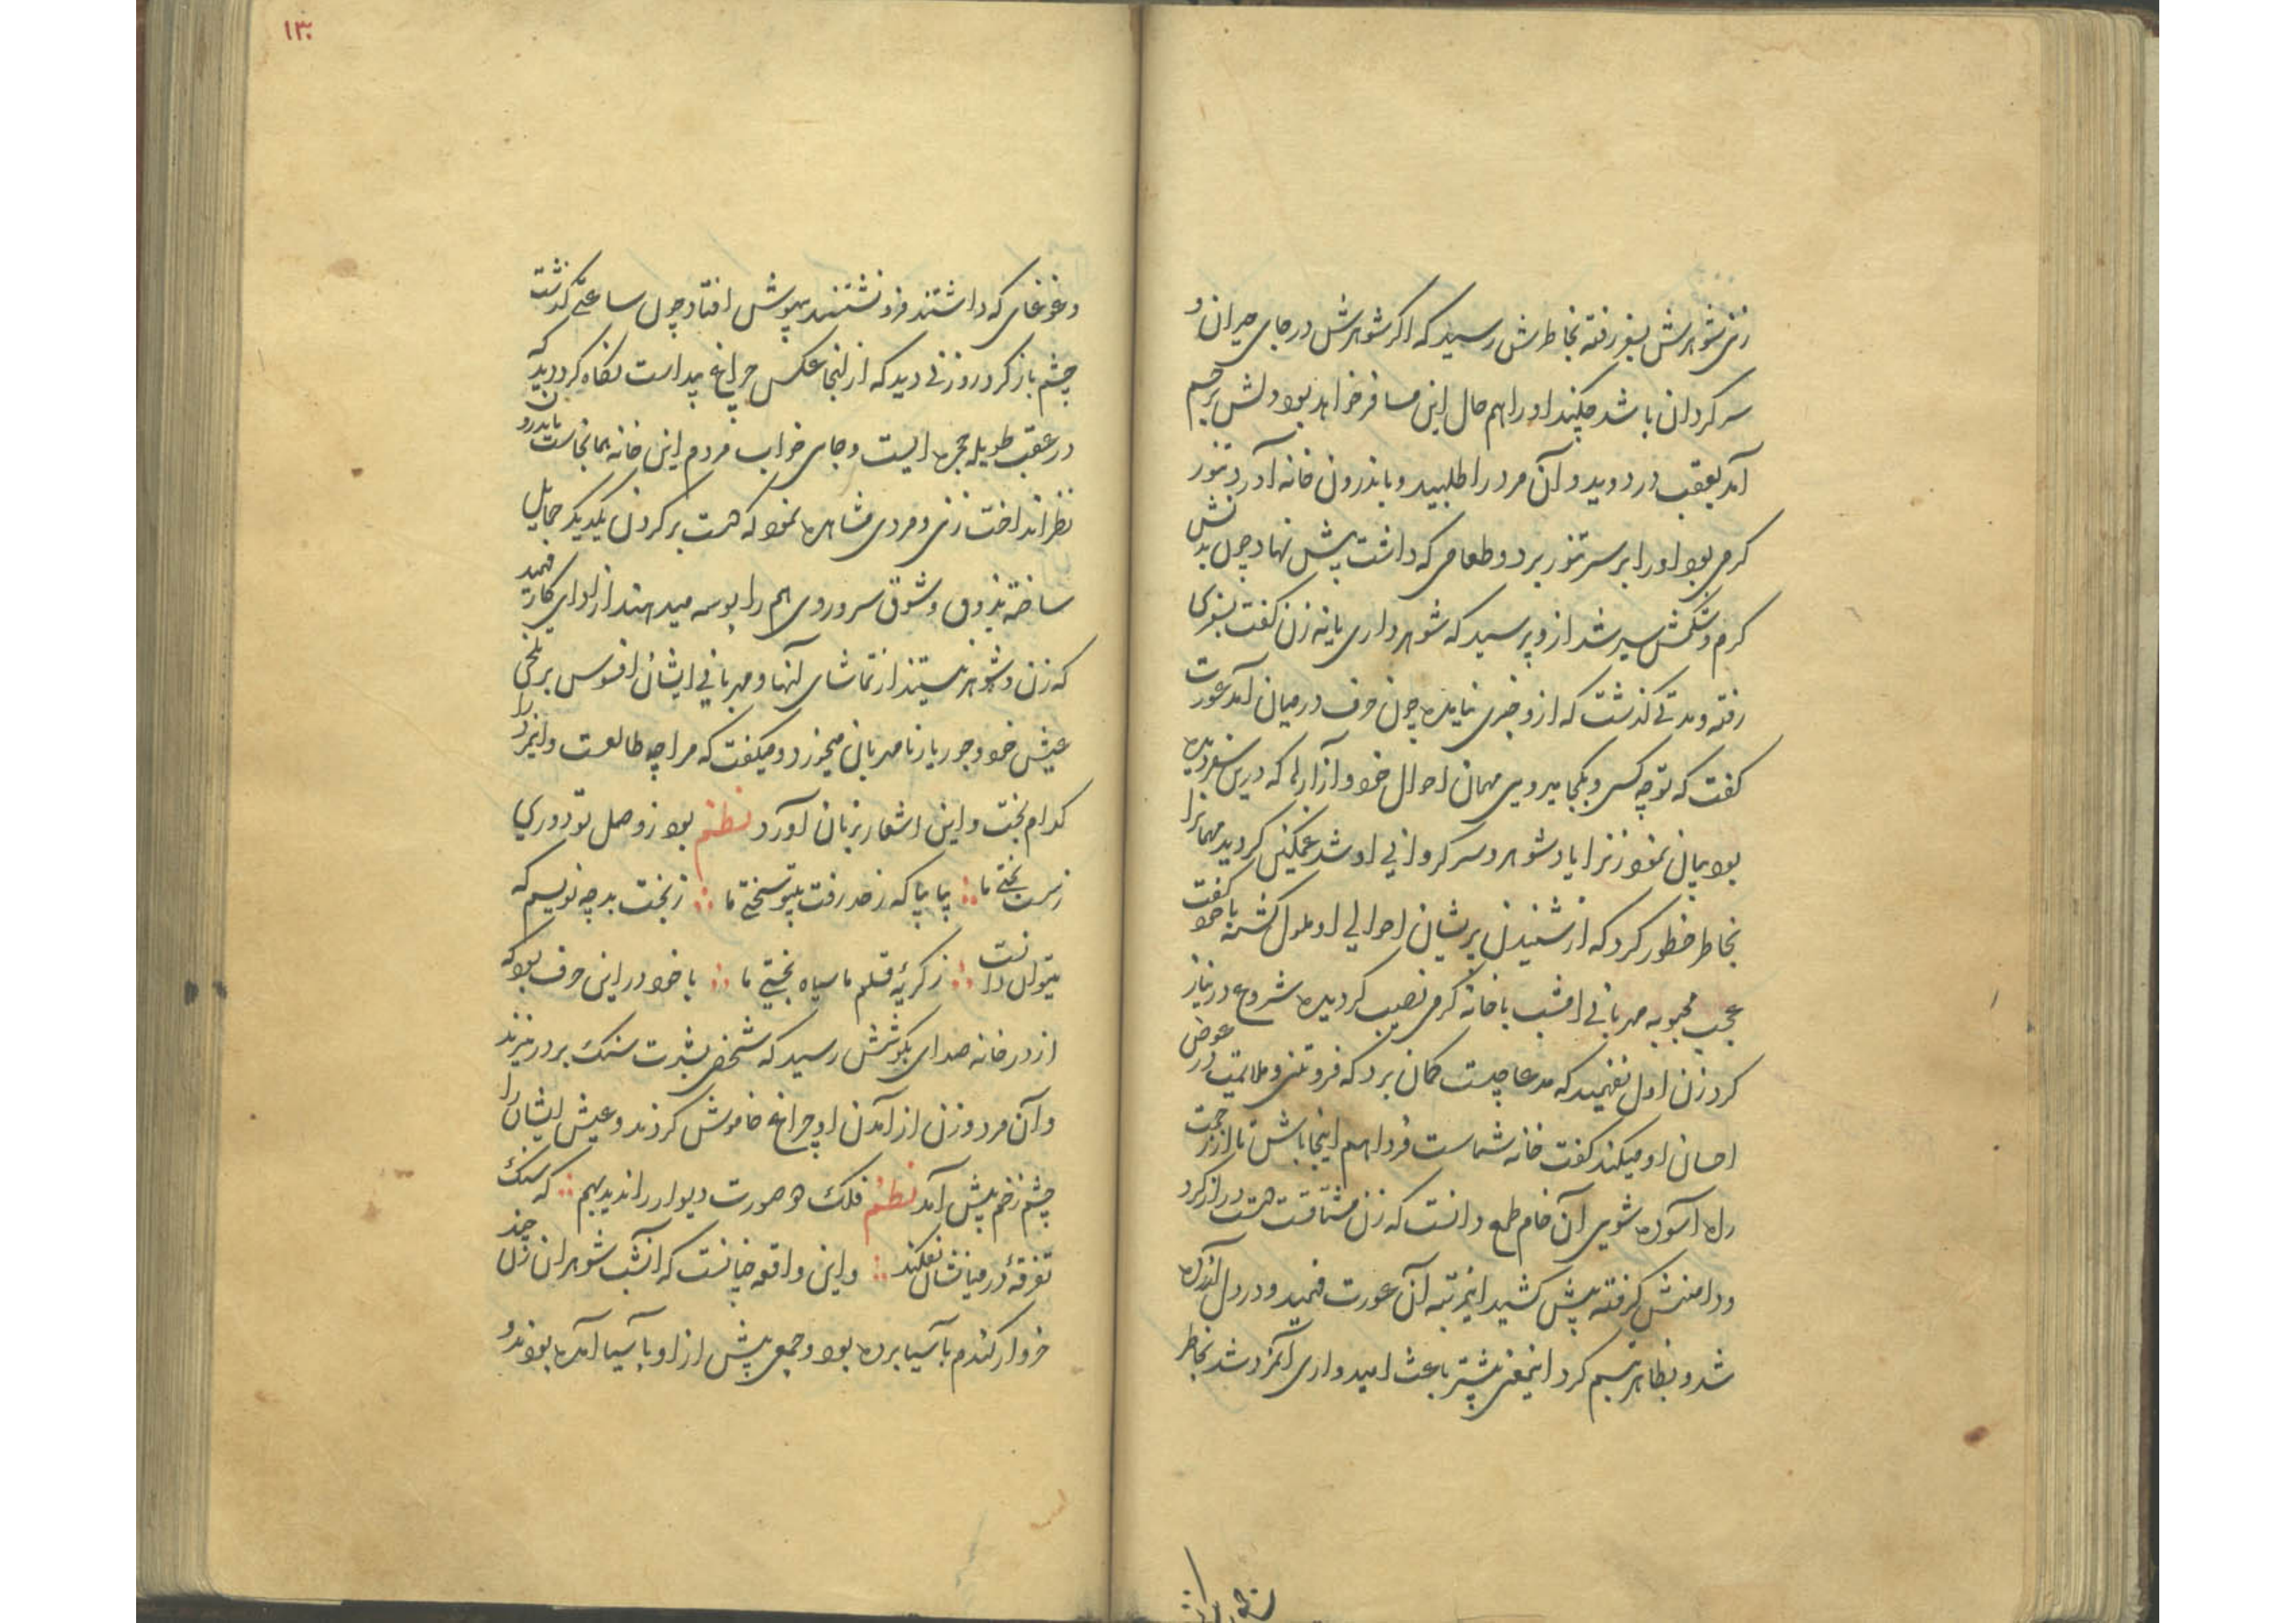 زنی شوهرش بسفر رفته بخاطرش رسید که اکر شوهرش در جای حیران و
سرکردان باشد چکند او را هم حال این مسافر خواهد بود دلش برحم
آمد بعقب در دوید و آن مرد را طلبید و باندرون خانه آورد تنور
کرمی بود او را بر سر تنور برد و طعامی که داشت پیش نهاد چون بدنش
کرم و شکمش سیر شد ازو پرسید که شوهر داری یا نه زن کفت بسفری
رفته و مدتی کذشت که ازو خبری نیامده چون حرف در میان آمد عورت
کفت که تو چه کسی و بکجا میروی مهمان احوال خود و آزارها که درین سفر دیده
بود بیان نمود زنرا یاد شوهر و سرکردانی او شد غمکین کردید مهمانرا
بخاطر خطور کرد که از شنیدن پریشان احوالی او ملول کشته با خود کفت
عجب محبوبه مهربانی امشب با خانه کرمی نصیب کردیده شروع در نیاز
کرد زن اول نفهمید که مدعا چیست کمان برد که فروتنی و ملایمت در عوض
احسان او میکند کفت خانه شماست فردا هم اینجا باش تا از زحمت
راه آسوده شوی آن خام طمع دانست که زن مشتاقست دست دراز کرد
و دامنش کرفته پیش کشید اینمرتبه آن عورت فهمید و در دل آزرده
شد و بظاهر تبسم کرد اینمعنی بیشتر باعث امیدواری آنمرد شد بخاطر
۱۳۰
و غوغای که داشتند فرونشستند بیهوش افتاد چون ساعتی کذشت
چشم باز کرد روزنی دید که از آنجا عکس چراغ پیداست نکاه کرد دید که
در عقب طویله حجره ایست و جای خواب مردم این خانه همانجاست باندرون
نظر انداخت زنی و مردی مشاهده نمود که دست بر کردن یکدیکر حمایل
ساخته بذوق و شوق سر و روی هم را بوسه میدهند از ادای کار فهمید
که زن و شوهر نیستند از تماشای آنها و مهربانی ایشان افسوس بر تلخی
عیش خود و جور یار نامهربان میخورد و میکفت که مرا چه طالعست و اینمرد را
کدام بخت و این اشعار بزبان آورد نظم بود ز وصل تو دوری
ز سست بختی ما بیا بیا که ز حد رفت بیتو سختی ما ز بخت بد چه نویسم که
میتوان دانست ز کریۀ قلم ما سیاه بختی ما با خود در این حرف بود که
از در خانه صدای بکوشش رسید که شخصی بشدت سنک بر در میزند
و آن مرد و زن از آمدن او چراغ خاموش کردند و عیش ایشان را
چشم زخم پیش آمد نظم فلک دو صورت دیوار را ندید بهم که سنک
تفرقۀ در میانشان نفکند و این واقعه چنانست که آنشب شوهر ان زن چند
خروار کندم بآسیا برده بود و جمعی پیش از او بآسیا آمده بودند و